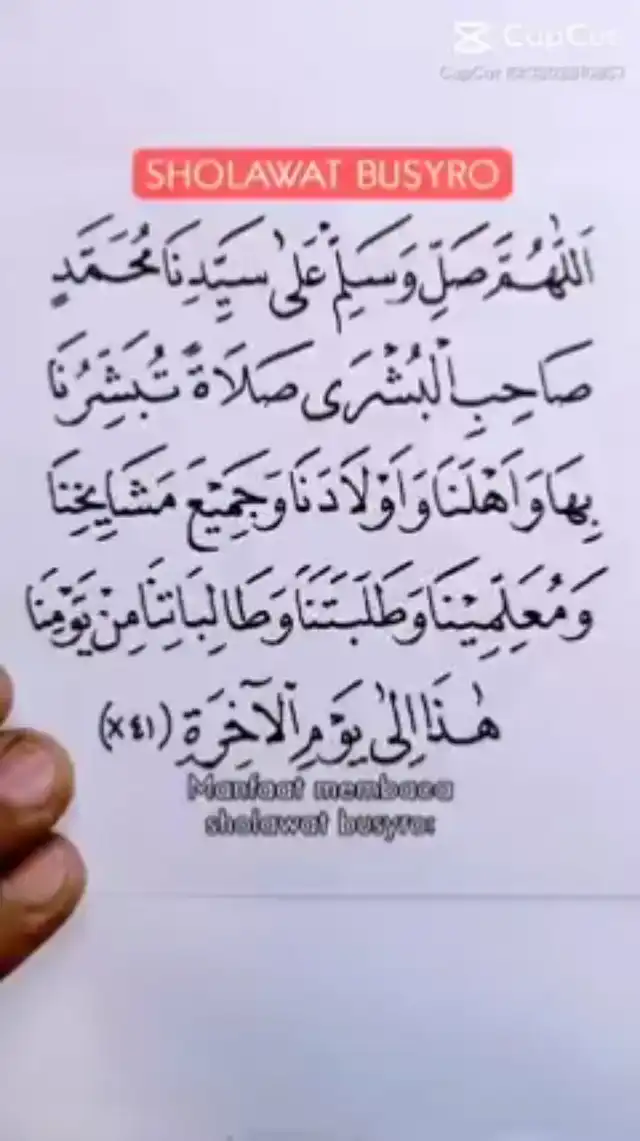 CapCut
SHOLAWAT BUSYRO
اَللّٰهُمَّ صَلِّ وَسَلِّمْ عَلٰى سَيِّدِنَا مُحَمَّدٍ
صَاحِبِ الْبُشْرَى صَلَاةً تُبَشِّرُنَا
بِهَا وَاَهْلَنَا وَاَوْلَادَنَا وَجَمِيْعَ مَشَايِخِنَا
وَمُعَلِّمِيْنَا وَطَلَبَتَنَا وَطَالِبَاتِنَا مِنْ يَوْمِنَا
هٰذَا اِلٰى يَوْمِ الْآخِرَةِ (٤١×)
Manfaat membaca
sholawat busyro: